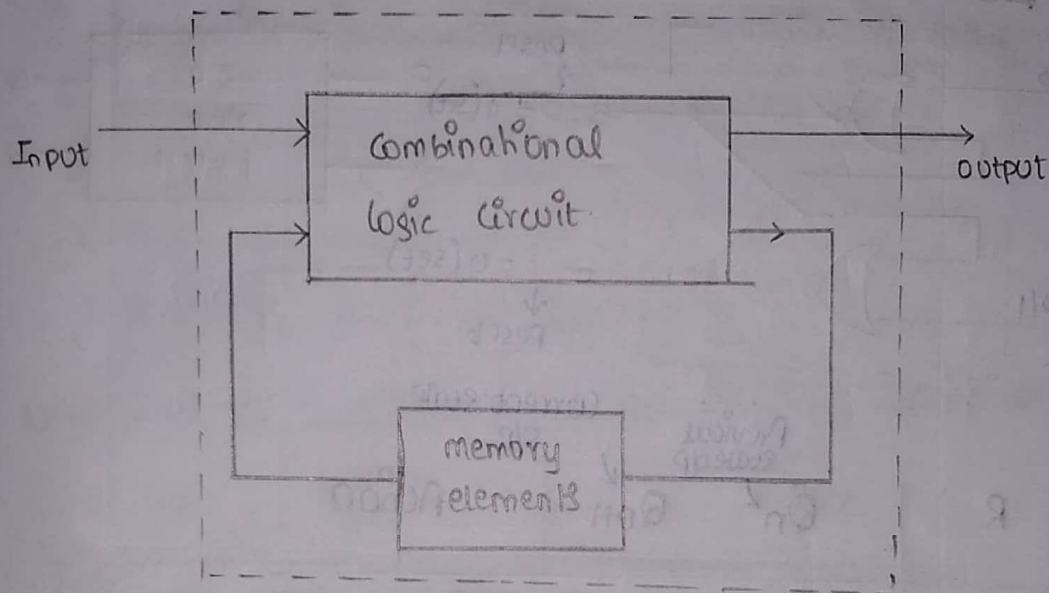 Input
Combinational
logic circuit.
output
memory
elements